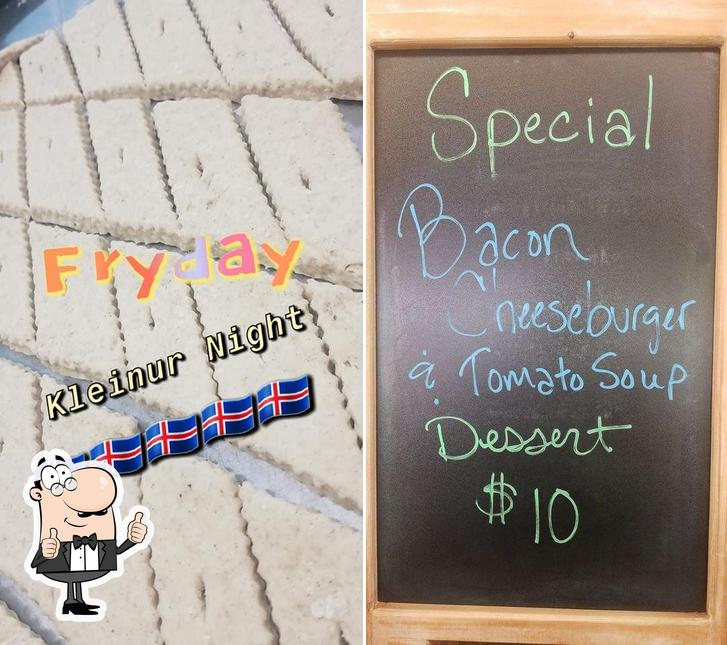 Fryday
Kleinur Night
Special
Bacon
Cheeseburger
& Tomato Soup
Dessert
$10